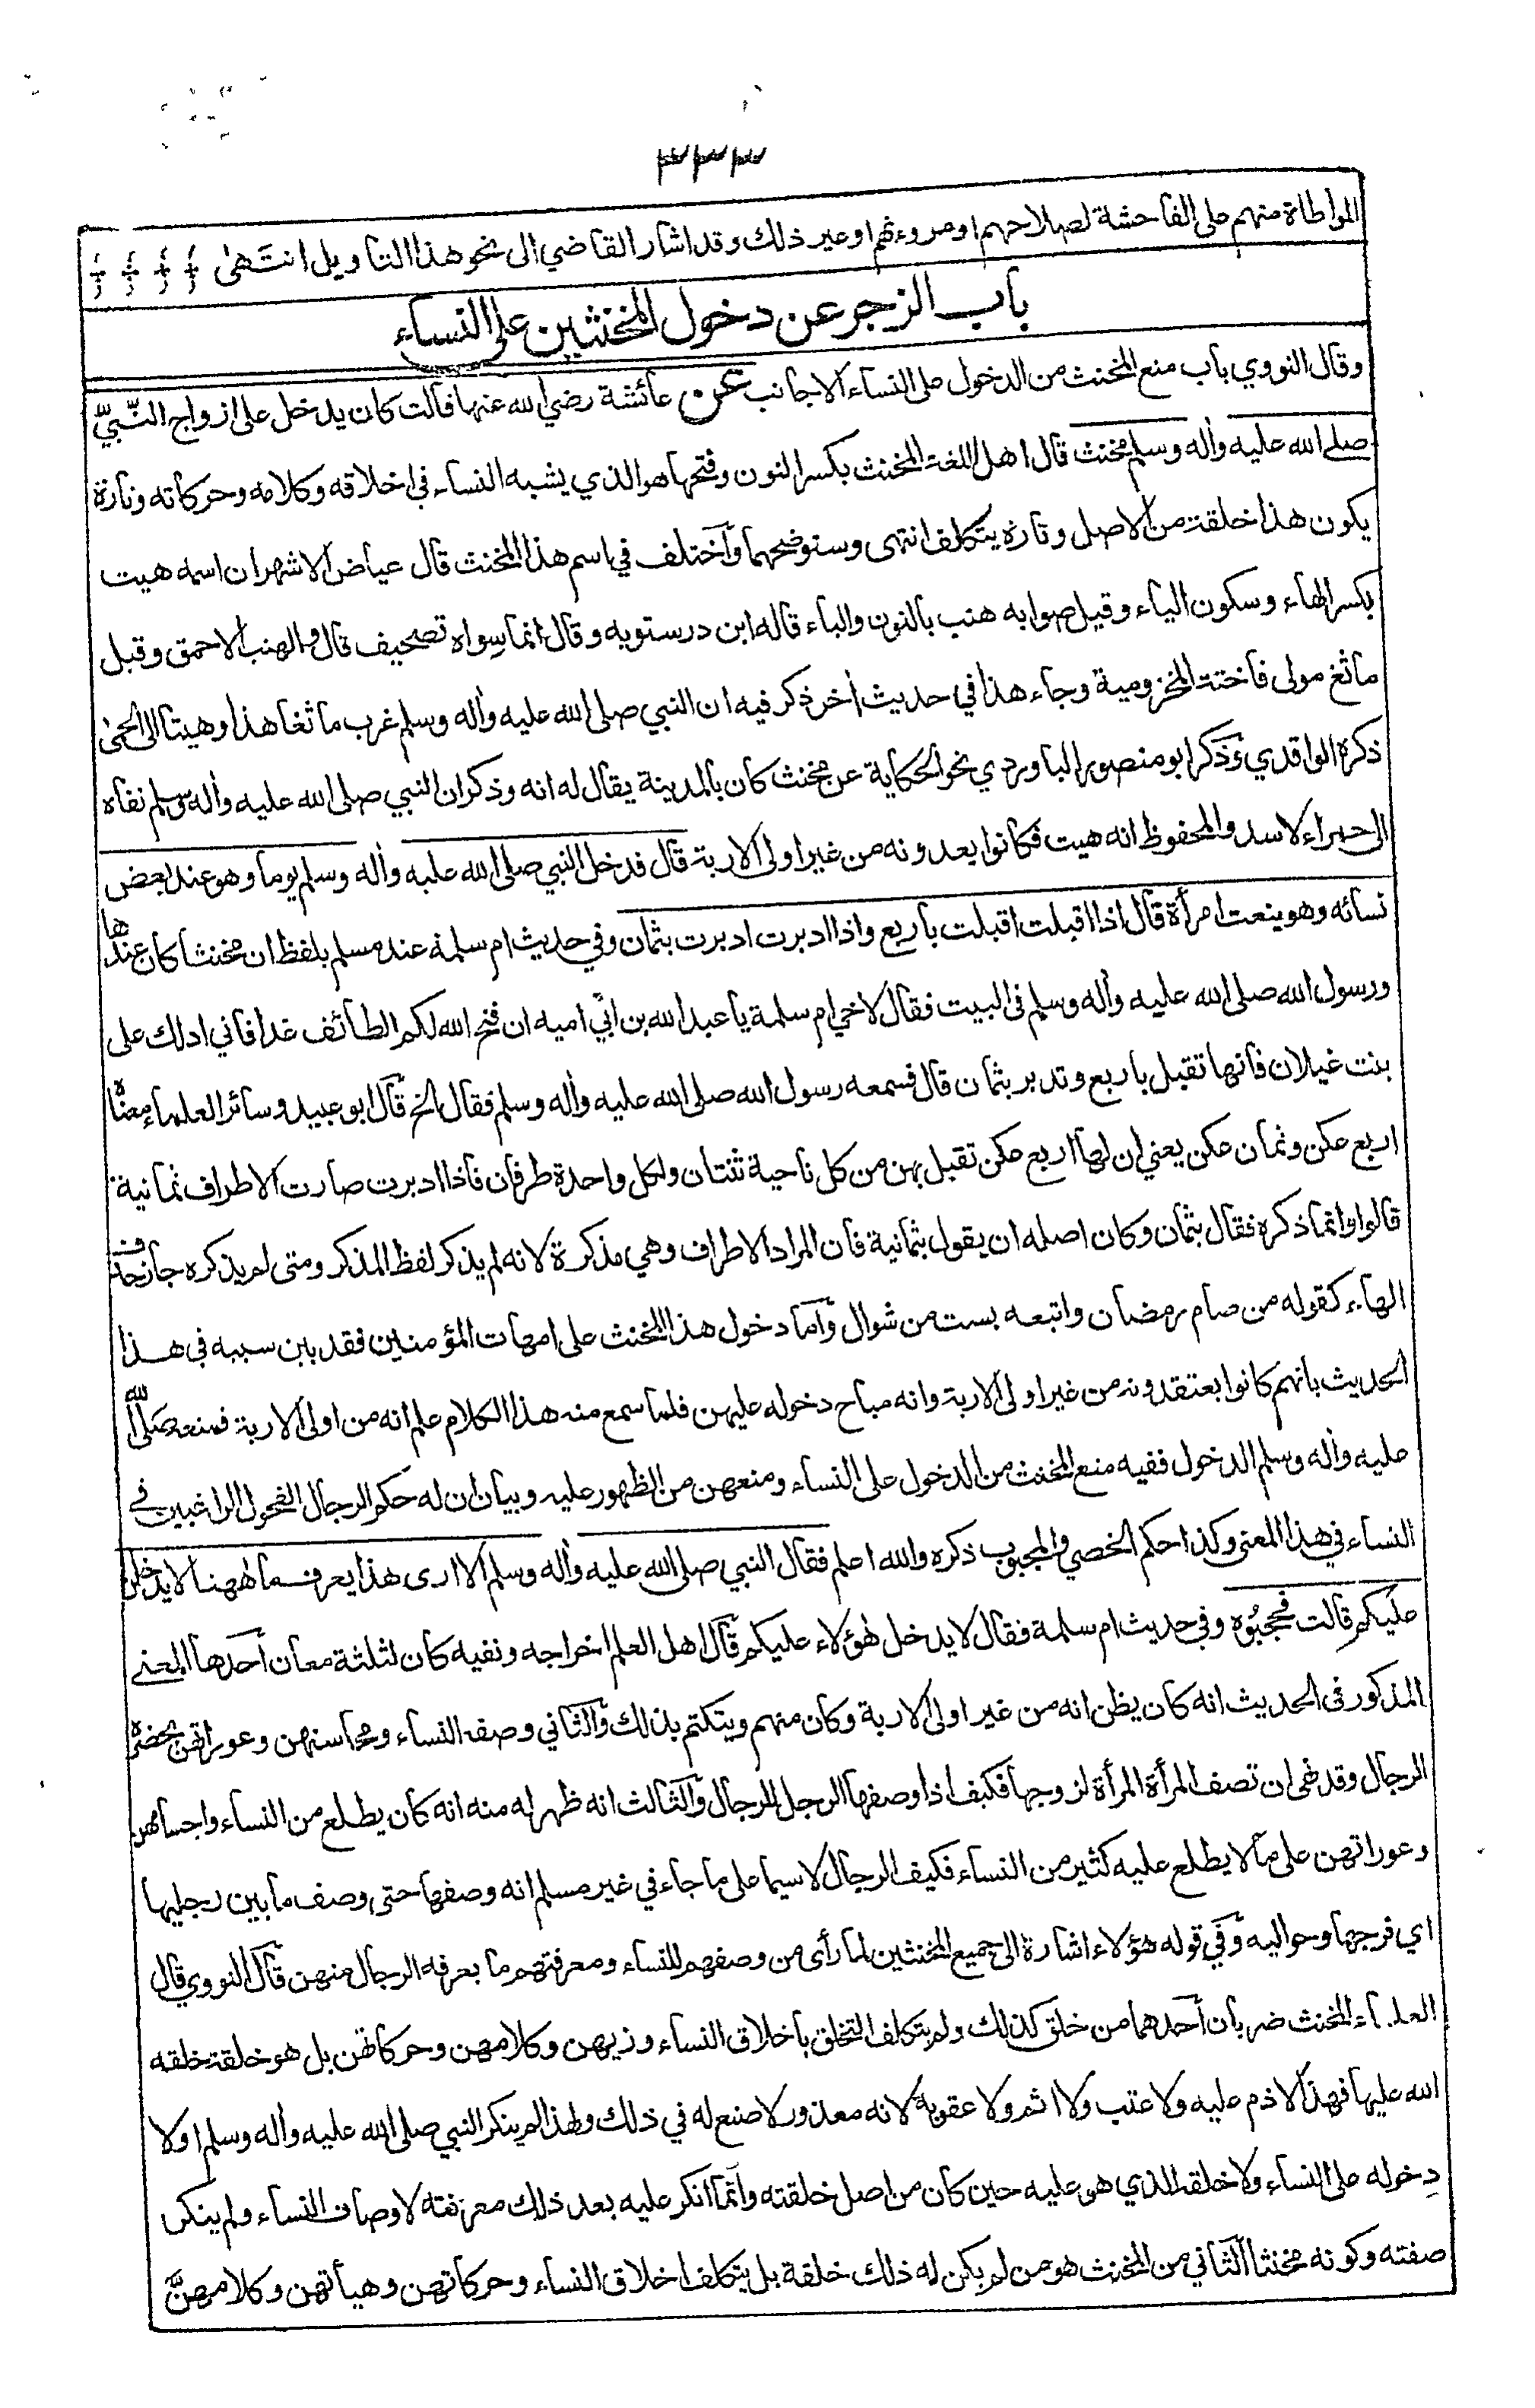 ٣٣٣
المواطاة منهم على الفاحشة لصلاحهم او مروءتهم او غير ذلك وقد اشار القاضي الى نحو هذا التاويل انتهى
باب الزجر عن دخول المخنثين على النساء
وقال النووي باب منع المخنث من الدخول على النساء الاجانب عن عائشة رضي الله عنها قالت كان يدخل على ازواج النّبيّ
صلى الله عليه واله وسلم مخنث قال اهل اللغة المخنث بكسر النون وفتحها هو الذي يشبه النساء في اخلاقه وكلامه وحركاته وتارة
يكون هذا خلقة من الاصل وتارة يتكلف انتهى وسنوضحهما واختلف في اسم هذا المخنث قال عياض الاشهر ان اسمه هيت
بكسر الهاء وسكون الياء وقيل صوابه هنب بالنون والباء قاله ابن درستويه وقال انما سواه تصحيف قال والهنب الاحمق وقيل
ماتغ مولى فاختة المخزومية وجاء هذا في حديث أخر ذكر فيه ان النبي صلى الله عليه واله وسلم غرب ماتغا هذا وهيتا الى الحمى
ذكره الواقدي وذكر ابو منصور الباوردي نحو الحكاية عن مخنث كان بالمدينة يقال له انه وذكر ان النبي صلى الله عليه واله وسلم نفاه
الى حمراء الاسد والمحفوظ انه هيت فكانوا يعدونه من غير اولى الاربة قال فدخل النبي صلى الله عليه واله وسلم يوما وهو عند بعض
نسائه وهو ينعت امرأة قال اذا اقبلت اقبلت باربع واذا ادبرت ادبرت بثمان وفي حديث ام سلمة عند مسلم بلفظ ان مخنثا كان عندها
ورسول الله صلى الله عليه واله وسلم في البيت فقال لاخي ام سلمة يا عبد الله بن ابي اميه ان فتح الله لكم الطائف غدا فاني ادلك على
بنت غيلان فانها تقبل باربع وتدبر بثمان قال فسمعه رسول الله صلى الله عليه واله وسلم فقال الخ قال ابو عبيد وسائر العلماء معناه
اربع عكن وثمان عكن يعني ان لها اربع عكن تقبل بهن من كل ناحية ثنتان ولكل واحدة طرفان فاذا ادبرت صارت الاطراف ثمانية
قالوا وانما ذكره فقال بثمان وكان اصله ان يقول بثمانية فان المراد الاطراف وهي مذكرة لانه لم يذكر لفظ المذكر ومتى لم يذكره جاز حذف
الهاء كقوله من صام رمضان واتبعه بست من شوال واما دخول هذا المخنث على امهات المؤمنين فقد بين سببه في هذا
الحديث بانهم كانوا يعتقدونه من غير اولى الاربة وانه مباح دخوله عليهن فلما سمع منه هذا الكلام علم انه من اولى الاربة فمنعه صلى الله
عليه واله وسلم الدخول ففيه منع المخنث من الدخول على النساء ومنعهن من الظهور عليه وبيان ان له حكم الرجال الفحول الراغبين في
النساء في هذا المعنى وكذا حكم الخصي والمجبوب ذكره والله اعلم فقال النبي صلى الله عليه واله وسلم الا ارى هذا يعرف ما ههنا لا يدخلن
عليكم قالت فحجبُوه وفي حديث ام سلمة فقال لا يدخل هؤلاء عليكم قال اهل العلم اخراجه ونفيه كان لثلثة معان احدها المعنى
المذكور في الحديث انه كان يظن انه من غير اولى الاربة وكان منهم ويتكتم بذلك والثاني وصفه النساء ومحاسنهن وعوراتهن بحضرة
الرجال وقد نهى ان تصف المرأة المرأة لزوجها فكيف اذا وصفها الرجل للرجال والثالث انه ظهر له منه انه كان يطلع من النساء واجسامهن
وعوراتهن على ما لا يطلع عليه كثير من النساء فكيف الرجال لا سيما على ما جاء في غير مسلم انه وصفها حتى وصف ما بين رجليها
اي فرجها وحواليه وفي قوله هؤلاء اشارة الى جميع المخنثين لما رأى من وصفهم للنساء ومعرفتهم ما يعرفه الرجال منهن قال النووي قال
العلماء المخنث ضربان احدهما من خلق كذلك ولم يتكلف التخلق باخلاق النساء وزيهن وكلامهن وحركاتهن بل هو خلقة خلقه
الله عليها فهذا لا ذم عليه ولا عتب ولا اثم ولا عقوبة لانه معذور لا صنع له في ذلك ولهذا لم ينكر النبي صلى الله عليه واله وسلم اولا
دخوله على النساء ولا خلقه الذي هو عليه حين كان من اصل خلقته وانما انكر عليه بعد ذلك معرفته لاوصاف النساء ولم ينكر
صفته وكونه مخنثا الثاني من المخنث هو من لم يكن له ذلك خلقة بل يتكلف اخلاق النساء وحركاتهن وهيأتهن وكلامهنّ